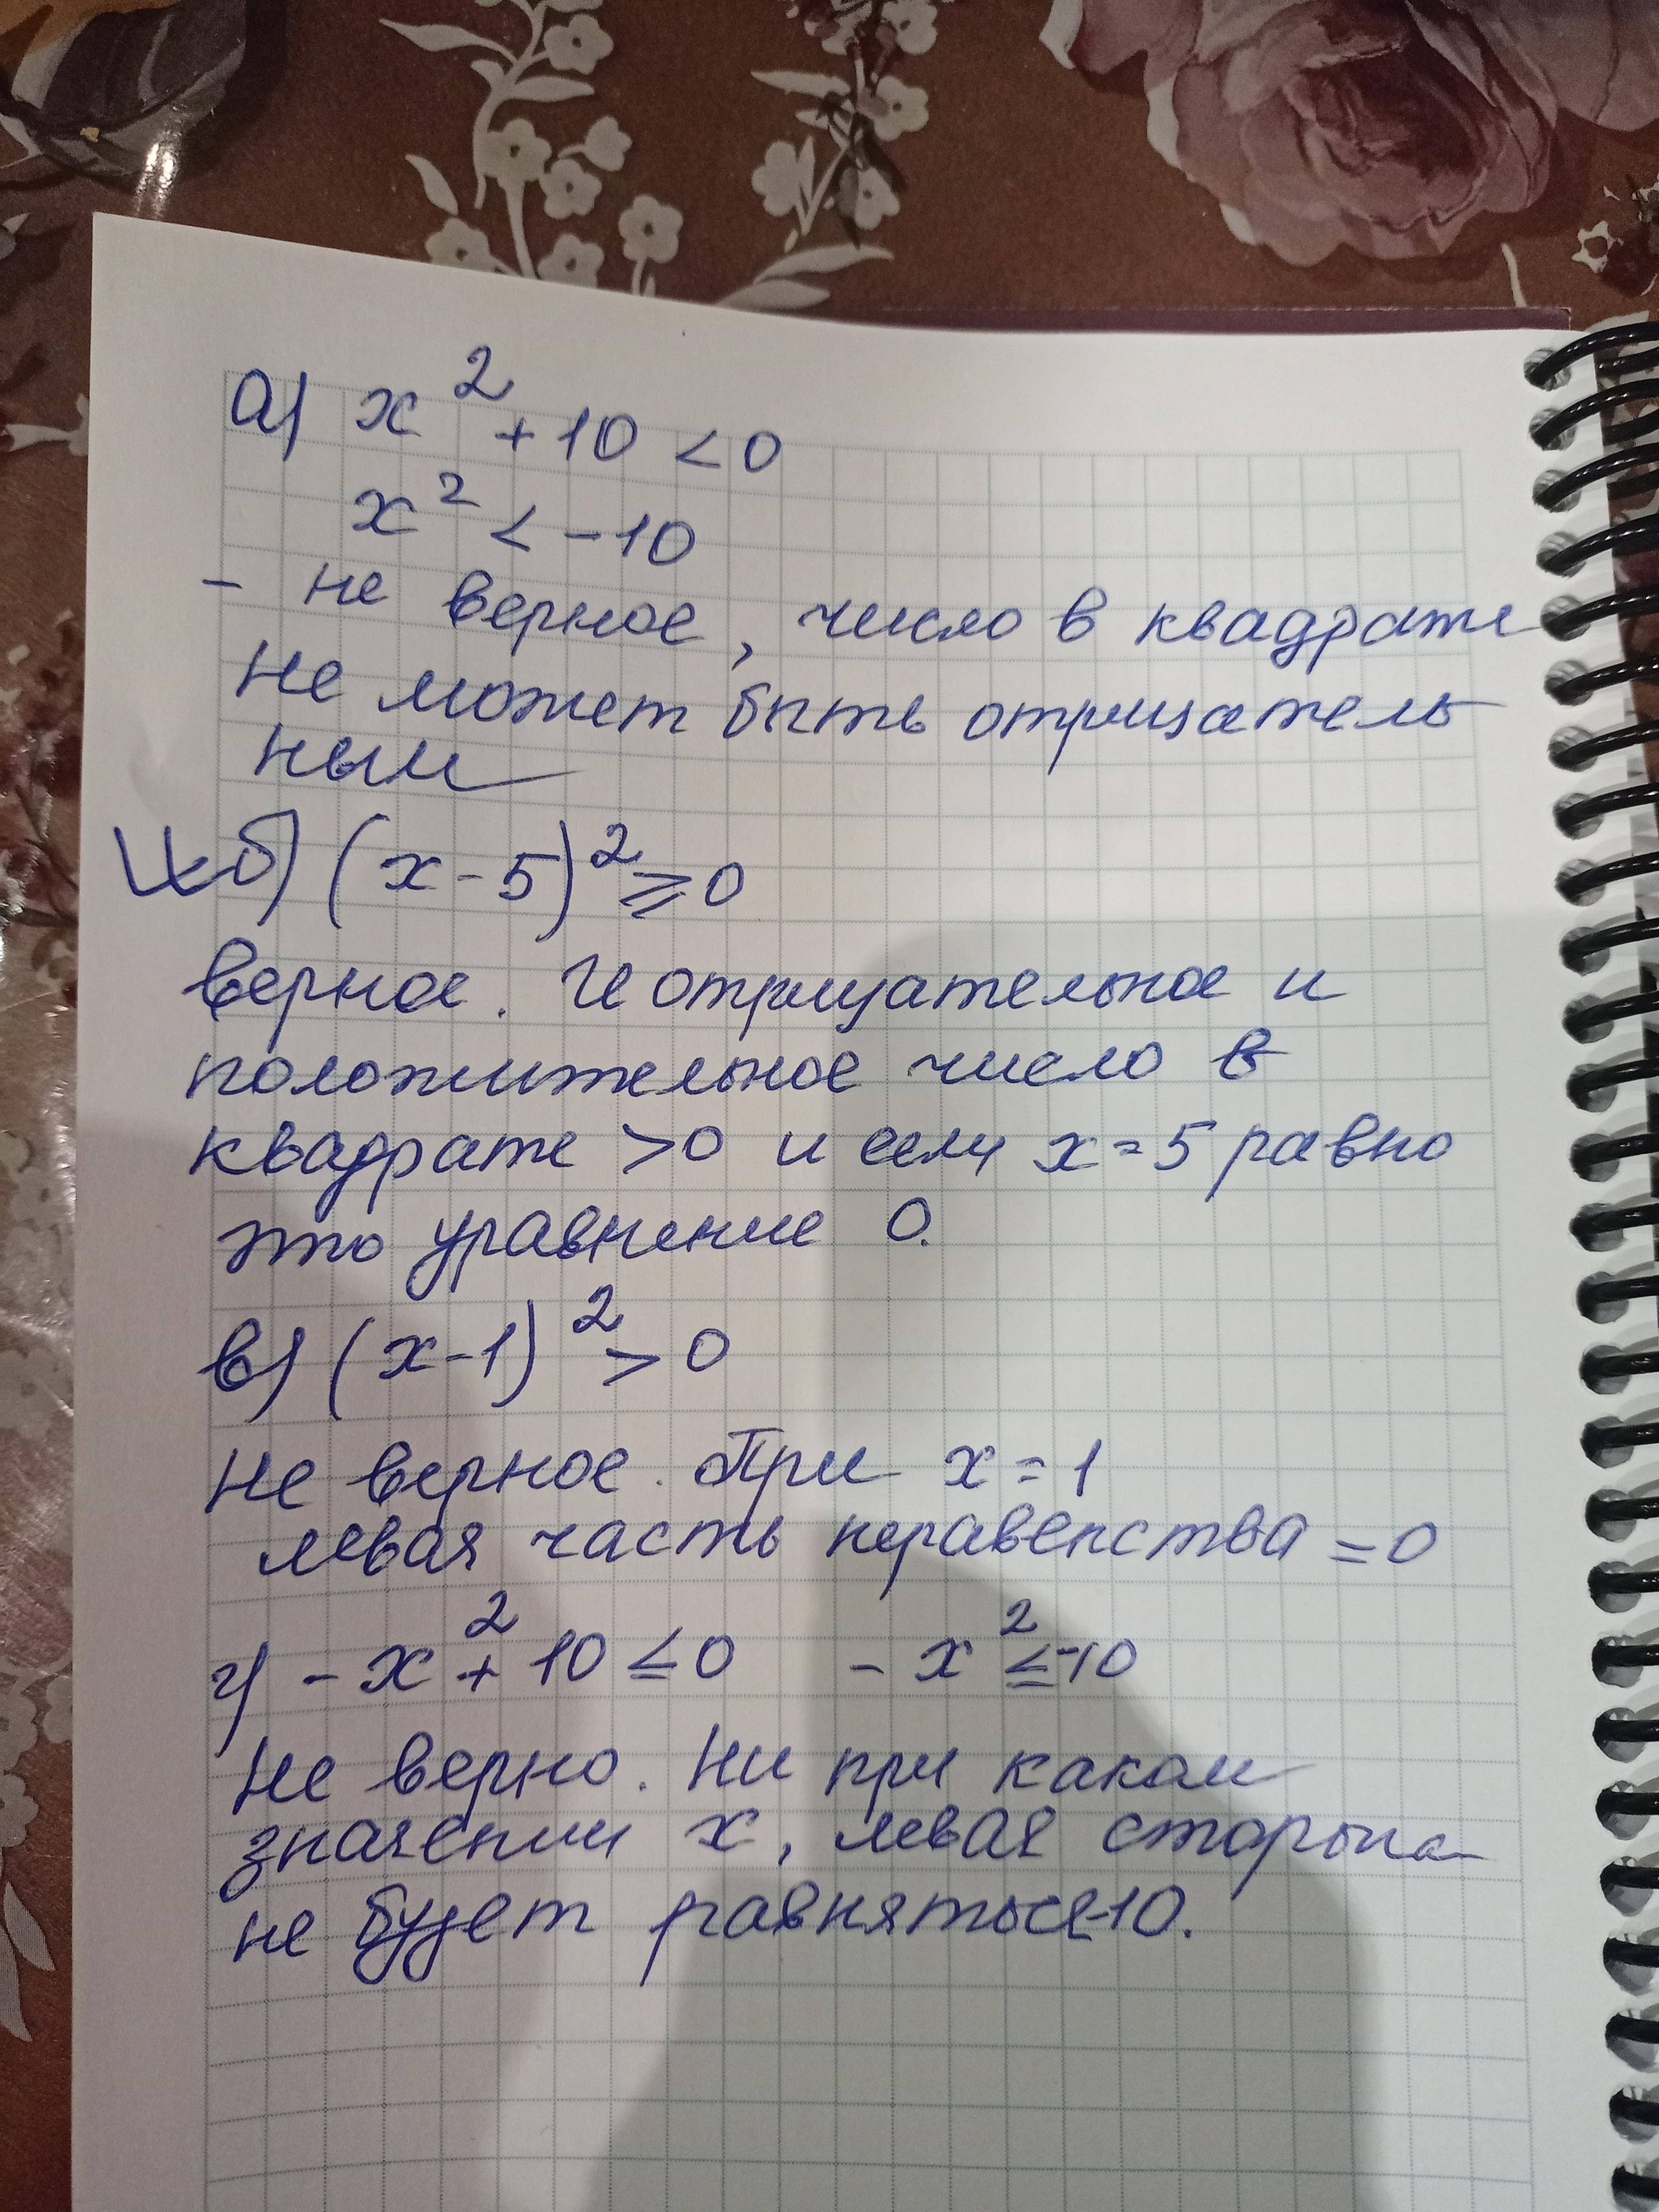 а) x² + 10 < 0
x² < -10
- не верное, число в квадрате
не может быть отрицатель
ным
б) (x - 5)² ≥ 0
верное. И отрицательное и
положительное число в
квадрате >0 и если x = 5 равно
это уравнение 0.
в) (x - 1)² > 0
Не верное. При x = 1
левая часть неравенства = 0
г) - x² + 10 ≤ 0 - x² ≤ -10
Не верно. Ни при каком
значении x, левая сторона
не будет равняться -10.